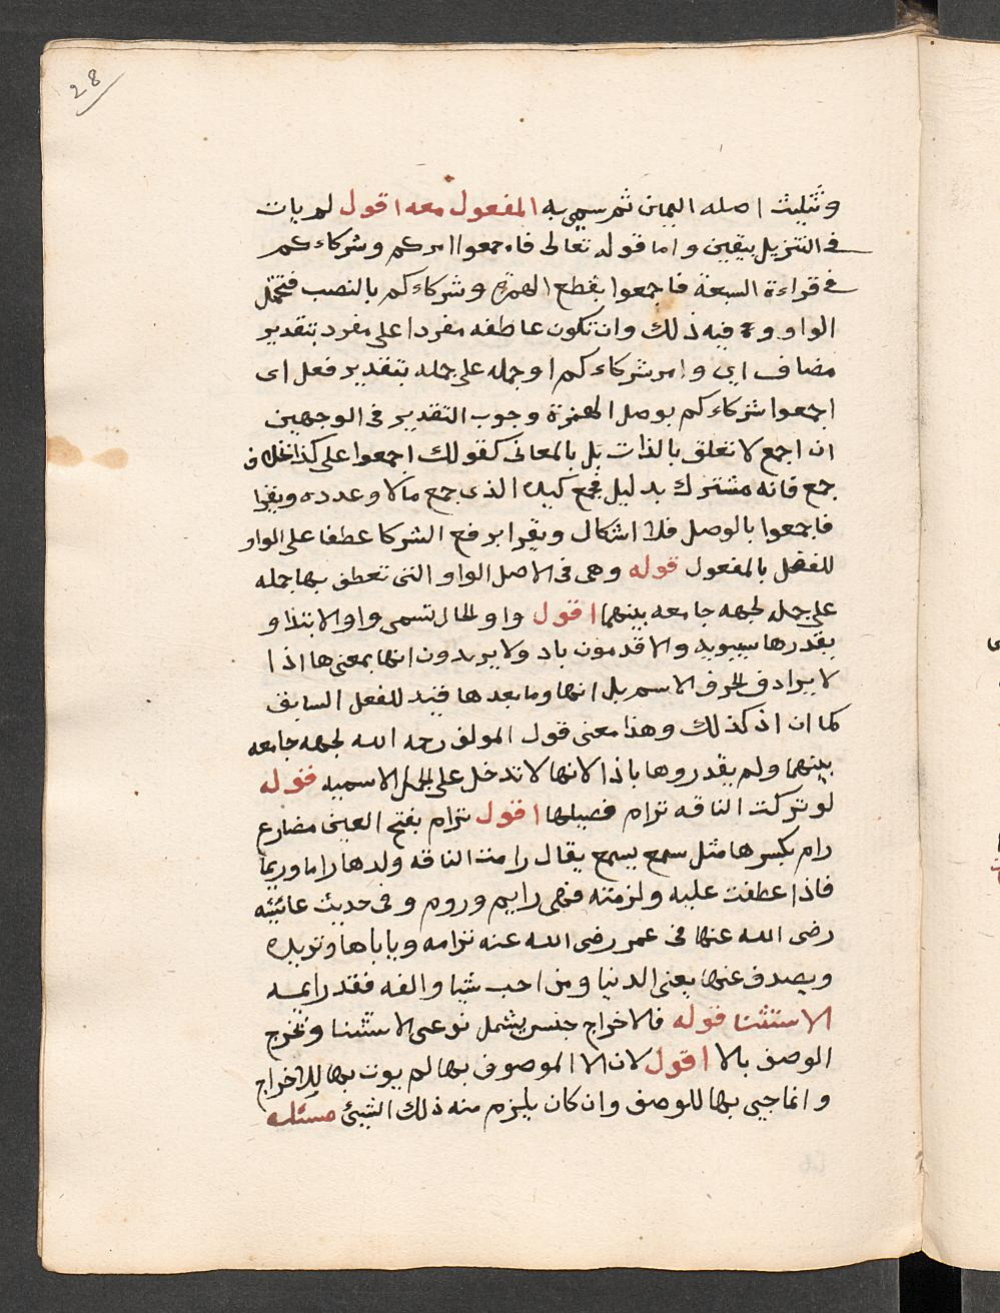 28
وتثليث اصله اليمان ثم سمي به المفعول معه اقول لم يات
فى التنزيل بيقين واما قوله تعالى فاجمعوا امركم وشركاءكم
فى قراءة السبعة فاجمعوا بقطع الهمزة وشركاءكم بالنصب فتحتمل
الواو فيه ذلك وان تكون عاطفه مفردا على مفرد بتقدير
مضاف اى وامر شركاءكم او جمله على جمله بتقدير فعل اى
اجمعوا شركاءكم بوصل الهمزة وجوب التقدير فى الوجهين
ان اجمع لا تعلق بالذات بل بالمعانى كقولك اجمعوا على كذا بخلاف
جمع فانه مشترك بدليل فجمع كيده الذى جمع مالا وعدده ويقرا
فاجمعوا بالوصل فلا اشكال ويقرا برفع الشركا عطفا على الواو
للفصل بالمفعول قوله وهى فى الاصل الواو التى تعطف بها جمله
على جمله لجهه جامعه بينهما اقول واو الحال تسمى واو الابتدا و
يقدرها سيبويه والاقدمون باذ ولا يريدون انها بمعنى هااذ ا
لا يرادف الحرف الاسم بل انها وما بعدها قيد للفعل السابق
كما ان اذ كذلك وهذا معنى قول المولف رحمه الله لجهه جامعه
بينهما ولم يقدروها باذا لانها لا تدخل على الجمل الاسميه قوله
لو تركت الناقه ترام فصيلها اقول ترام بفتح العين مضارع
رام بكسرها مثل سمع يسمع يقال رامت الناقه ولدها راما وريما
فاذا عطفت عليه ولزمته فهى رايم وروم وفى حديث عائيشه
رضى الله عنها فى عمر رضى الله عنه ترامه ويا باها وتريده
ويصدف عنها يعنى الدنيا ومن احب شيا والفه فقد رايمه
الاستثنا قوله فالاخراج جنس يشمل نوعى الاستثنا وتخرج
الوصف بالا اقول لان الا الموصوف بها لم يوت بها للاخراج
وانما جيى بها للوصف وان كان يلزم منه ذلك الشيئ مسئله